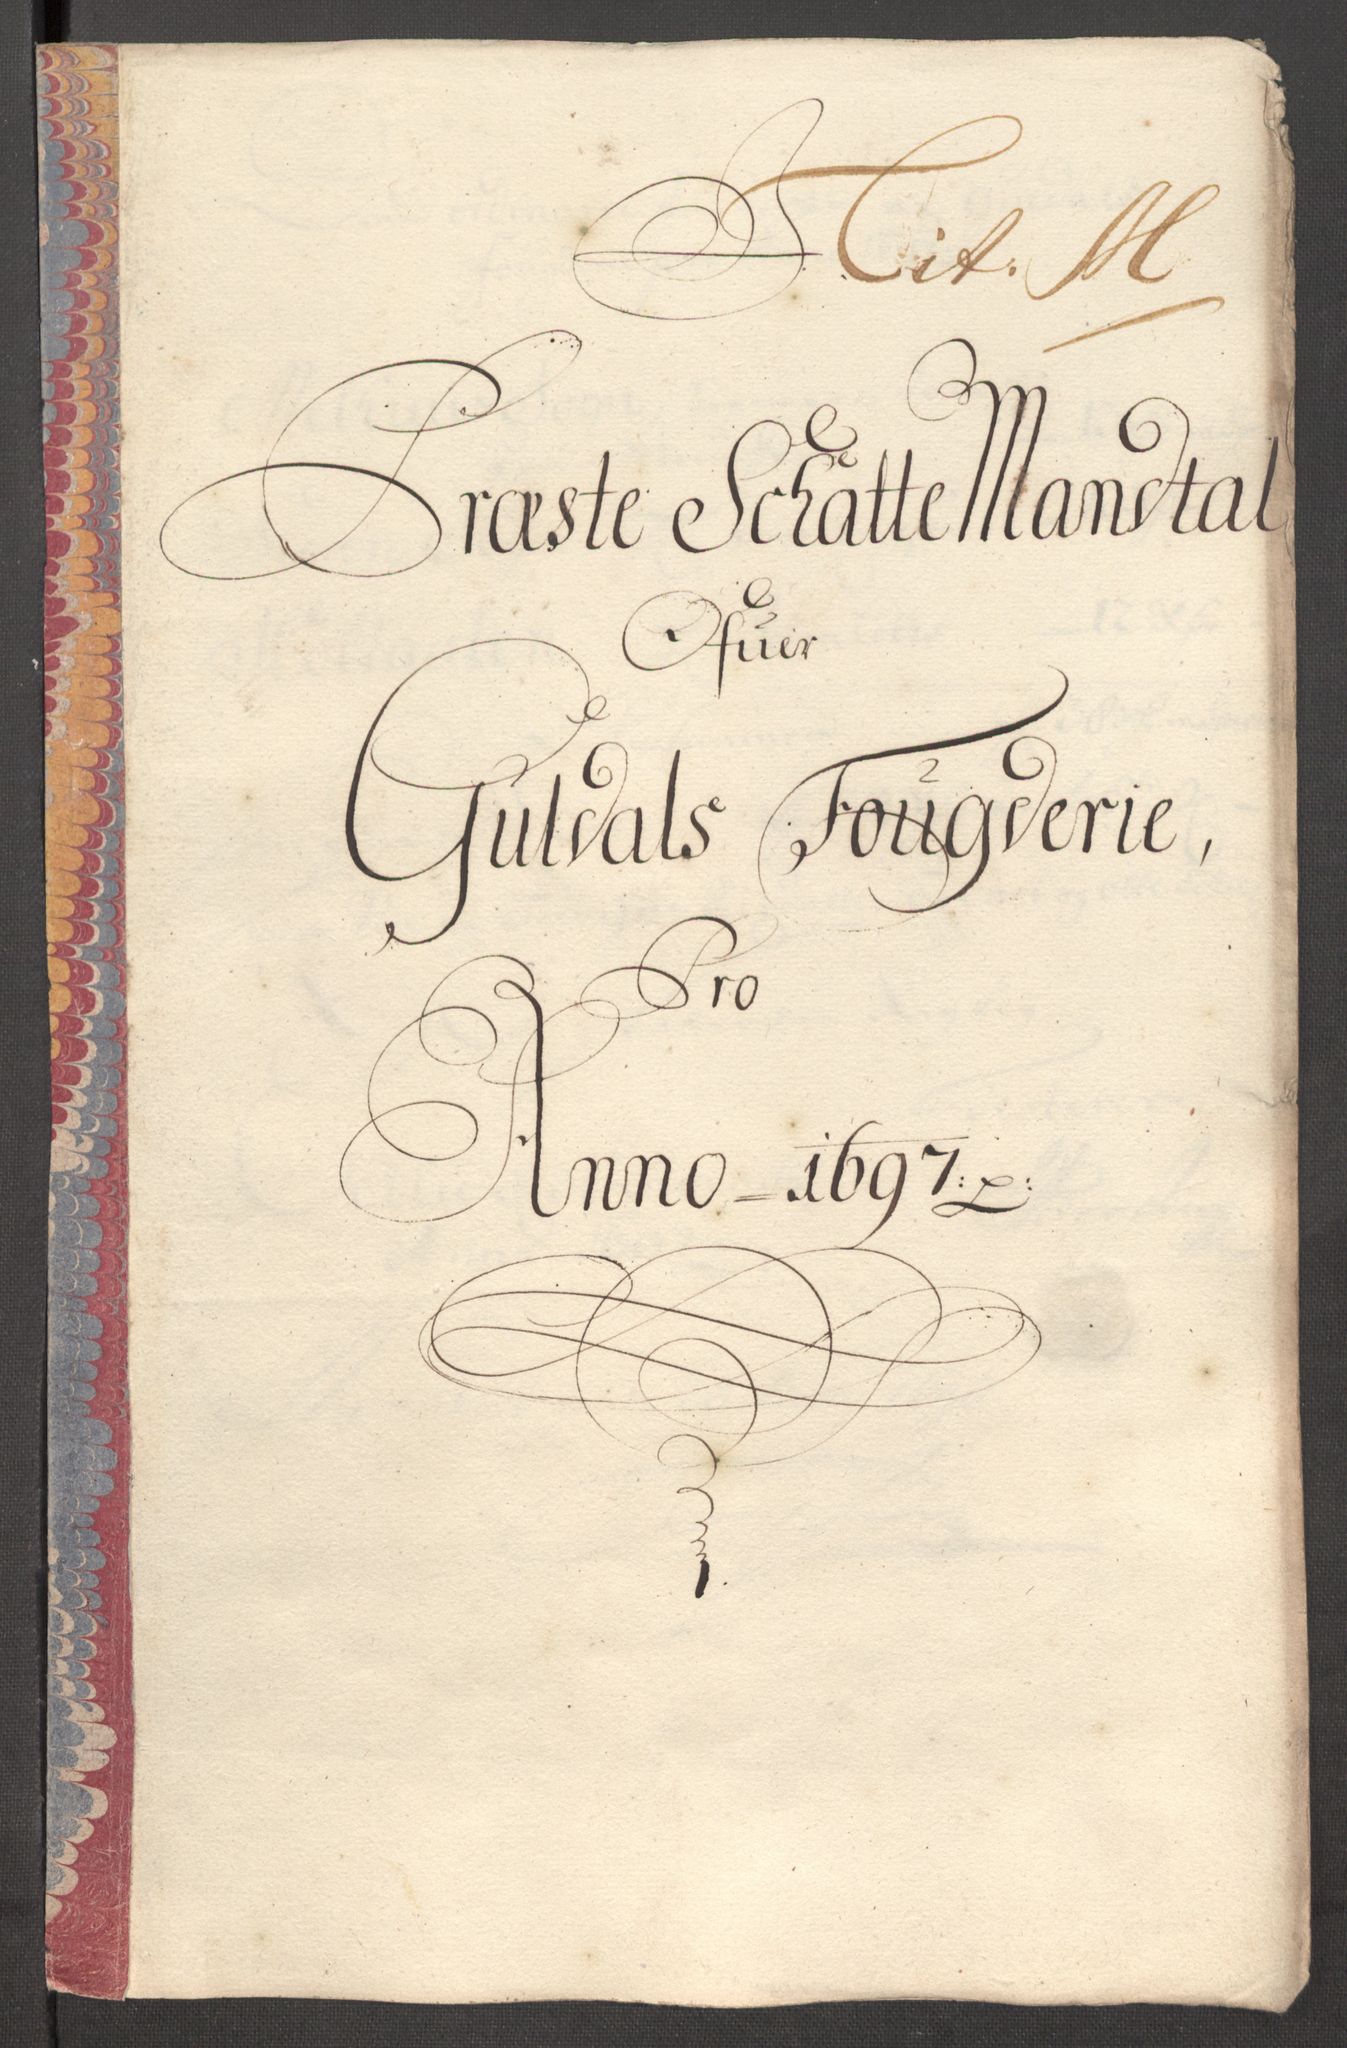 Lit. M
Præste Schatte Mandtal
Ofuer
Guldals Fougderie,
Pro
Anno - 1697